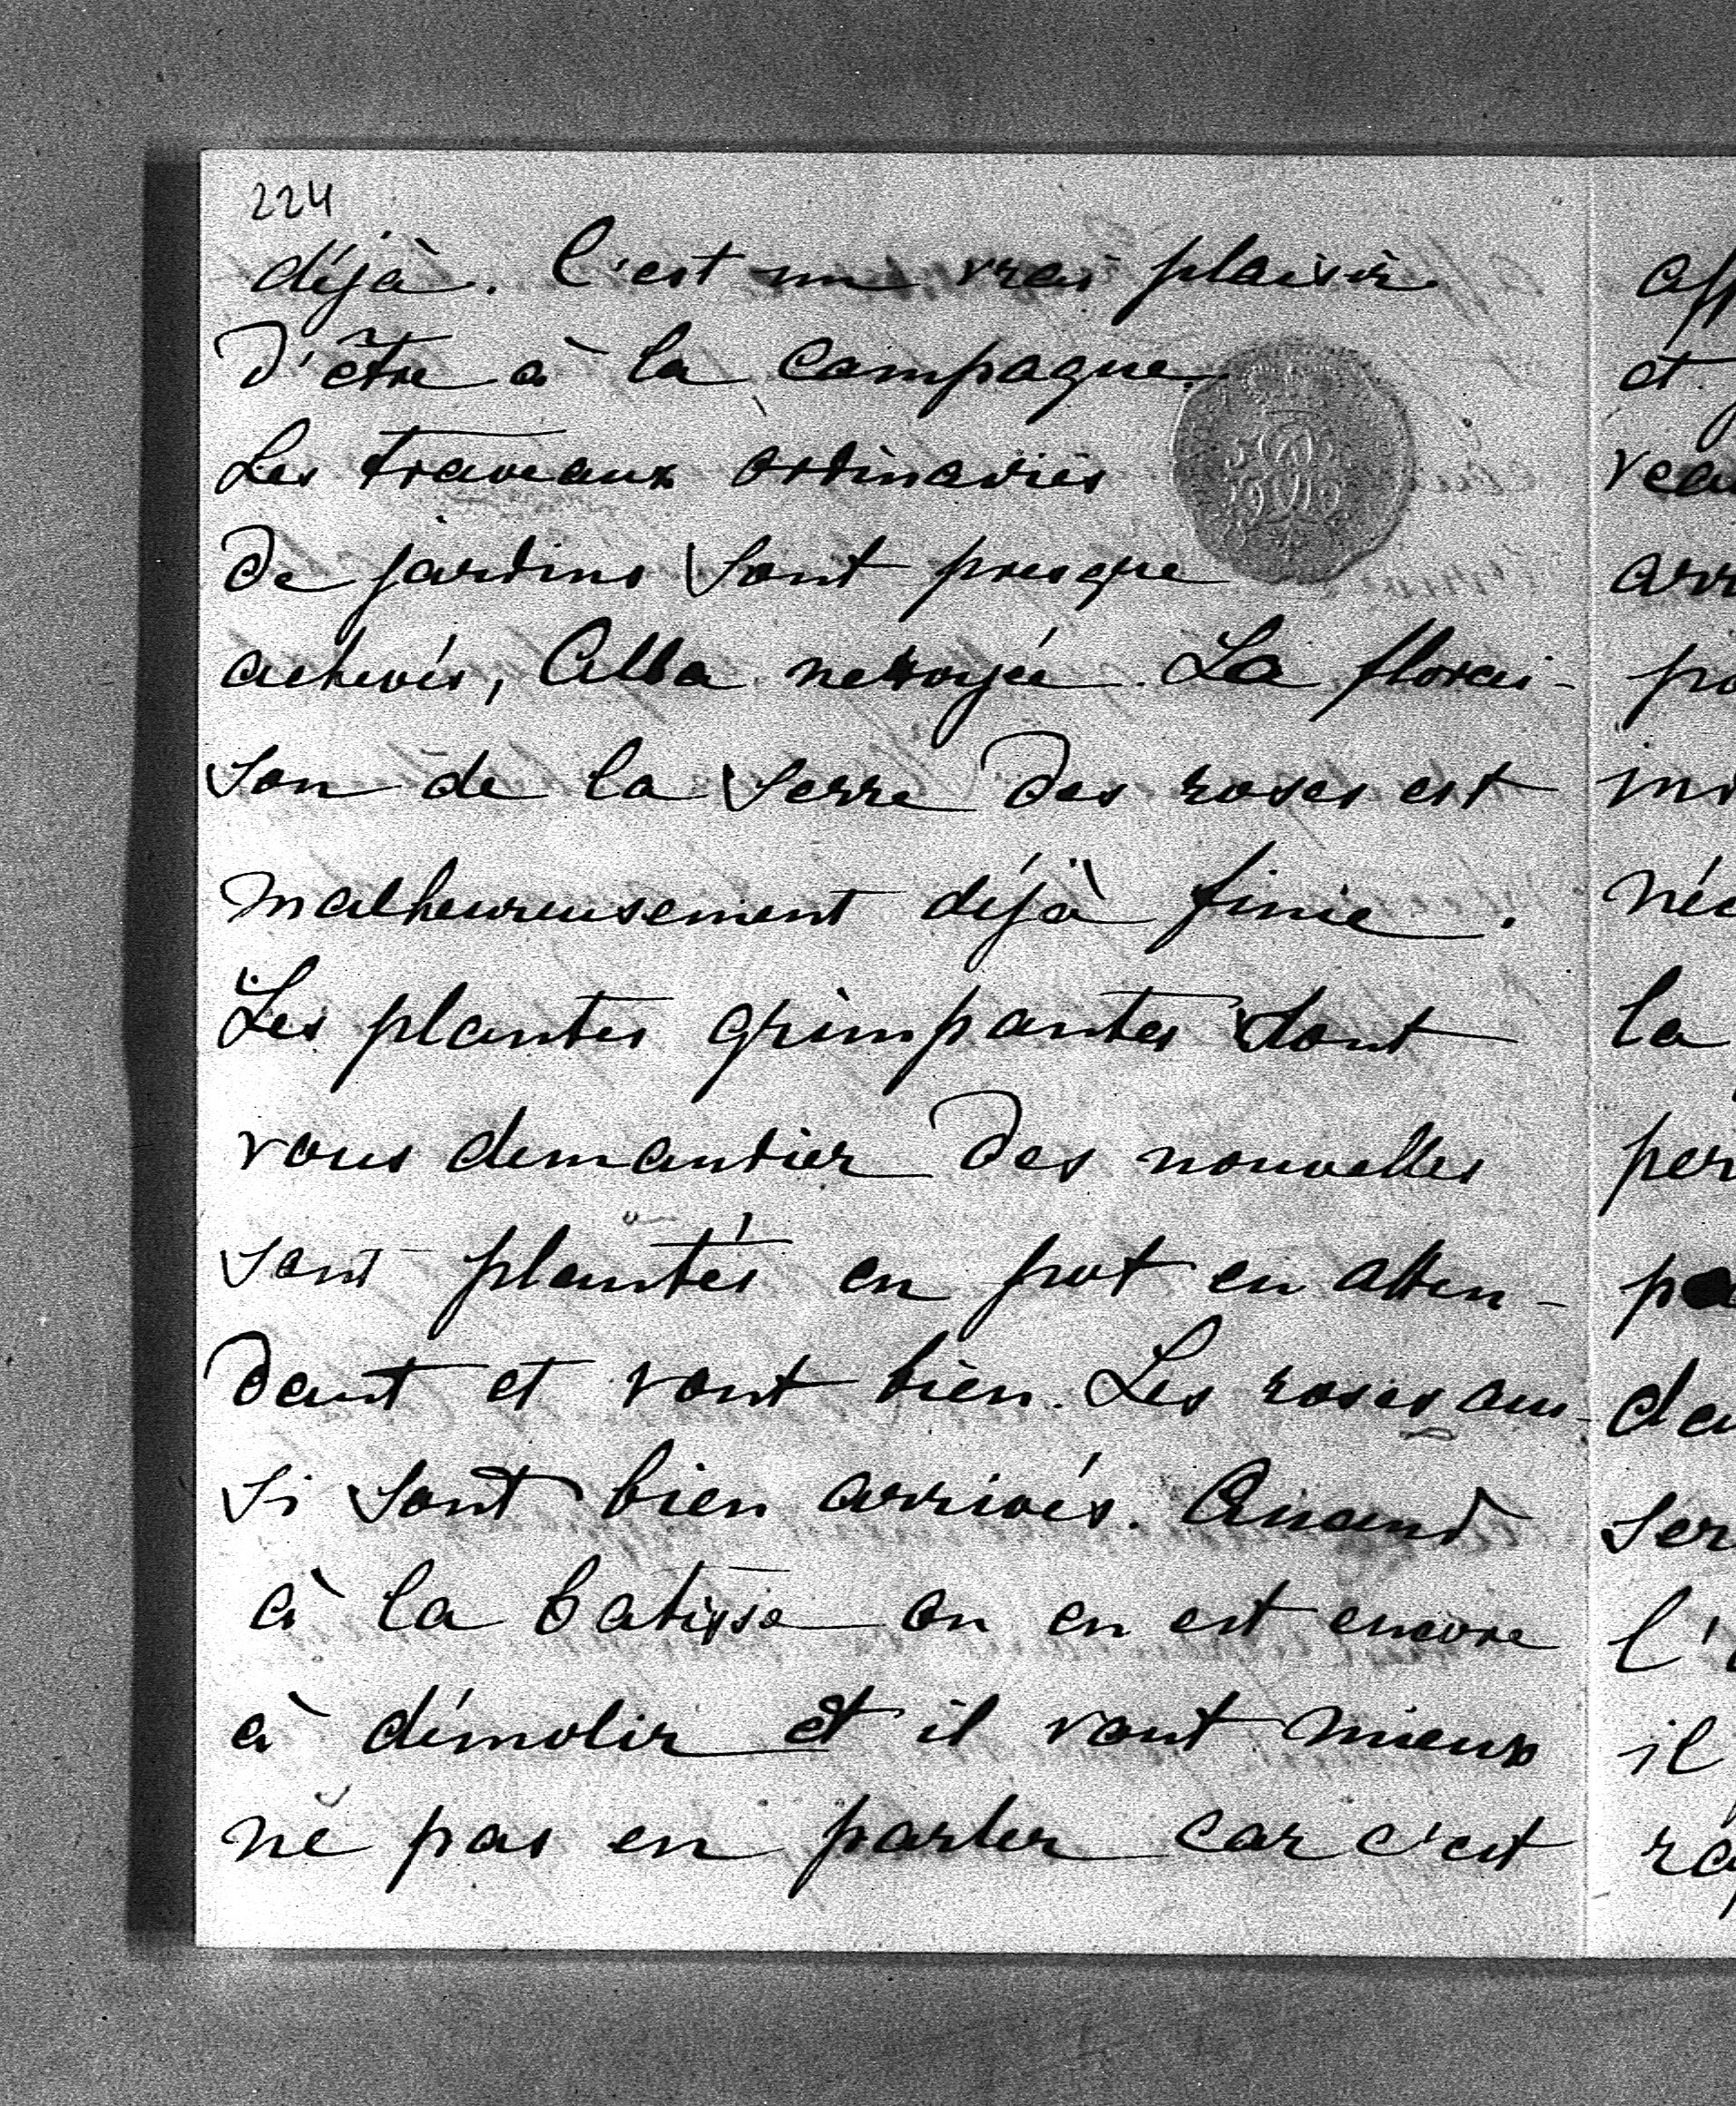 224
déjà. C'est un vrai plaisir
d'être à la campagne.
Les traveaux ordinaries
de jardins sont presque
achevés, Alba netoyée. La florai-
son de la serre des roses est
malheureusement déjà finie.
Les plantes grimpantes dont
vous demandier des nouvelles
sont plantés en pot en atten-
dant et vont bien. Les roses aus-
si sont bien arrivés. Quand
à la batisse on en est encore
à démolir et il vaut mieux
ne pas en parler car c'est
et
la
il